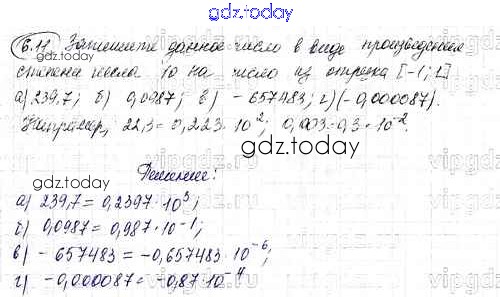 gdz.today
6.11 Запишите данное число в виде произведения
степени числа 10 на число из отрезка [-1; 1]
а) 239,7; б) 0,0987; в) - 657483; г) (-0,000087).
Например, 22,3 = 0,223 · 10²; 0,003 = 0,3 · 10⁻².
gdz.today
Решение:
а) 239,7 = 0,2397 · 10³;
б) 0,0987 = 0,987 · 10⁻¹;
в) - 657483 = -0,657483 · 10⁻⁶;
г) -0,000087 = -0,87 · 10⁻⁴
gdz.today
vipgdz
vipgdz
vipgdz